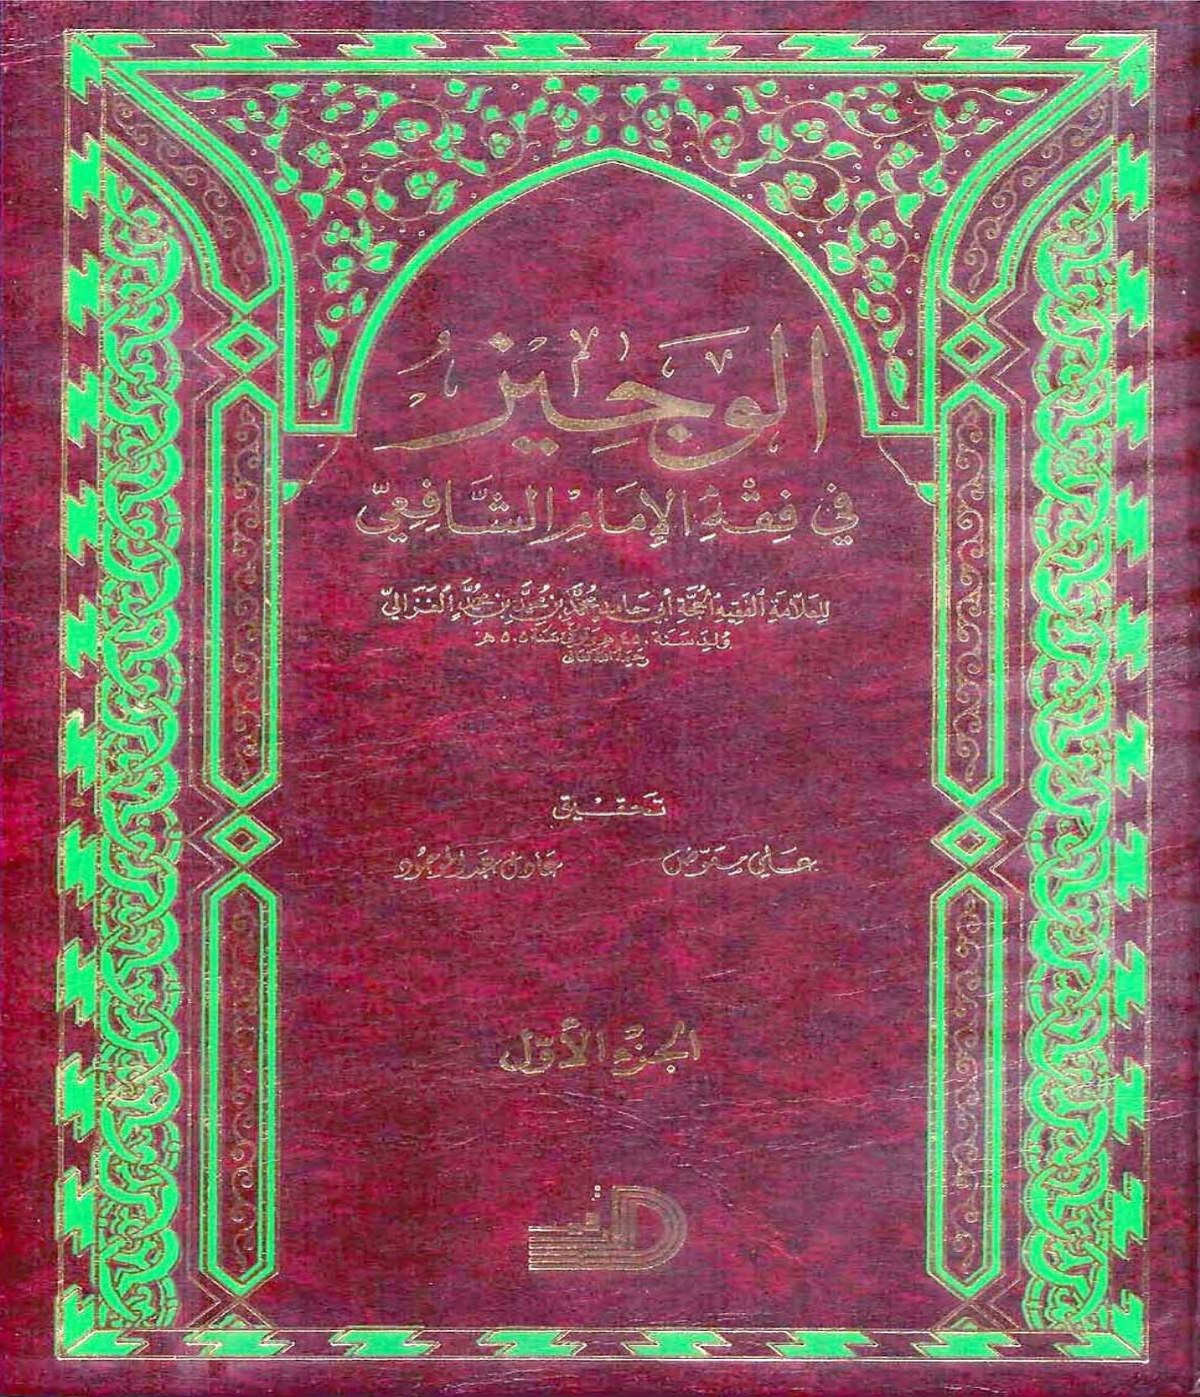 الوَجِيز
في فِقْهِ الإِمَامِ الشَّافِعِيّ
للعَلّامَة الفَقيه الحُجّة أبي حَامِد مُحمَّد بن مُحمَّد بن مُحمَّد الغَزَاليّ
وُلِدَ سَنَة ٤٥٠ هـ وتوفي سَنَة ٥٠٥ هـ
رحمه الله تعالى
تَحقِيق
عَلي معَوّض عَادل عَبد الموجُود
الجُزءُ الأَوّل